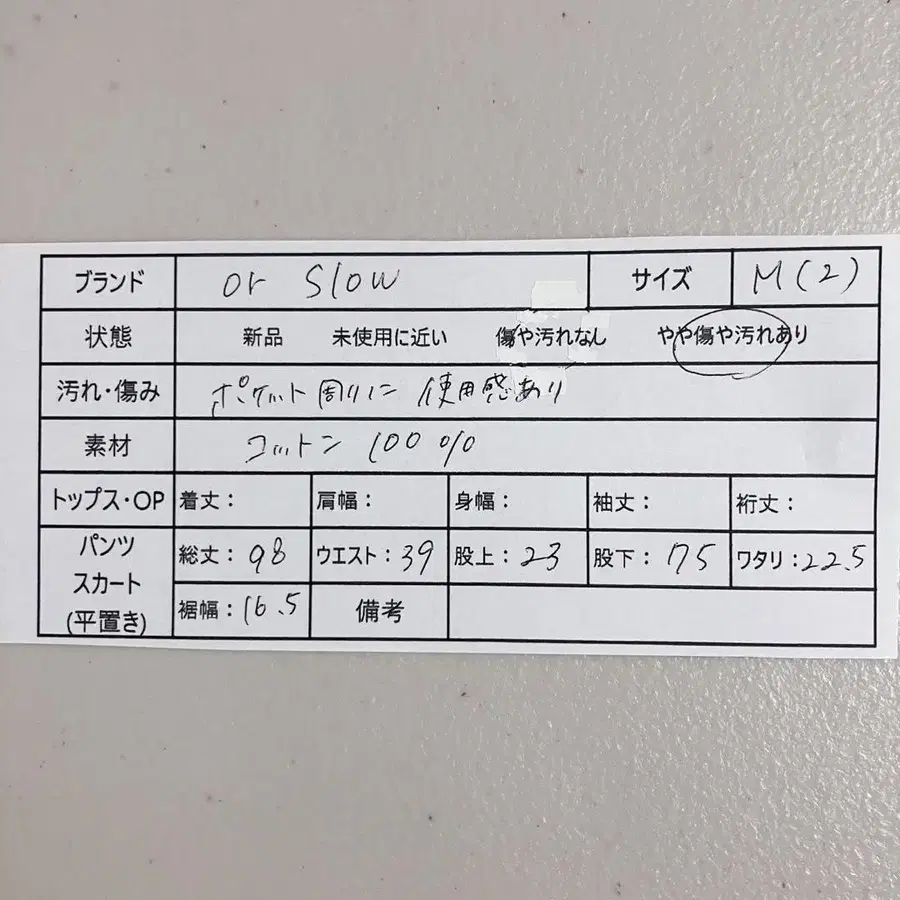 ブランド or slow サイズ M(2)
状態 新品 未使用に近い 傷や汚れなし やや傷や汚れあり
汚れ・傷み ポケット周りに 使用感あり
素材 コットン 100%
トップス・OP 着丈: 肩幅: 身幅: 袖丈: 裄丈:
パンツ スカート (平置き) 総丈:98 ウエスト:39 股上:23 股下:75 ワタリ:22.5
裾幅:16.5 備考